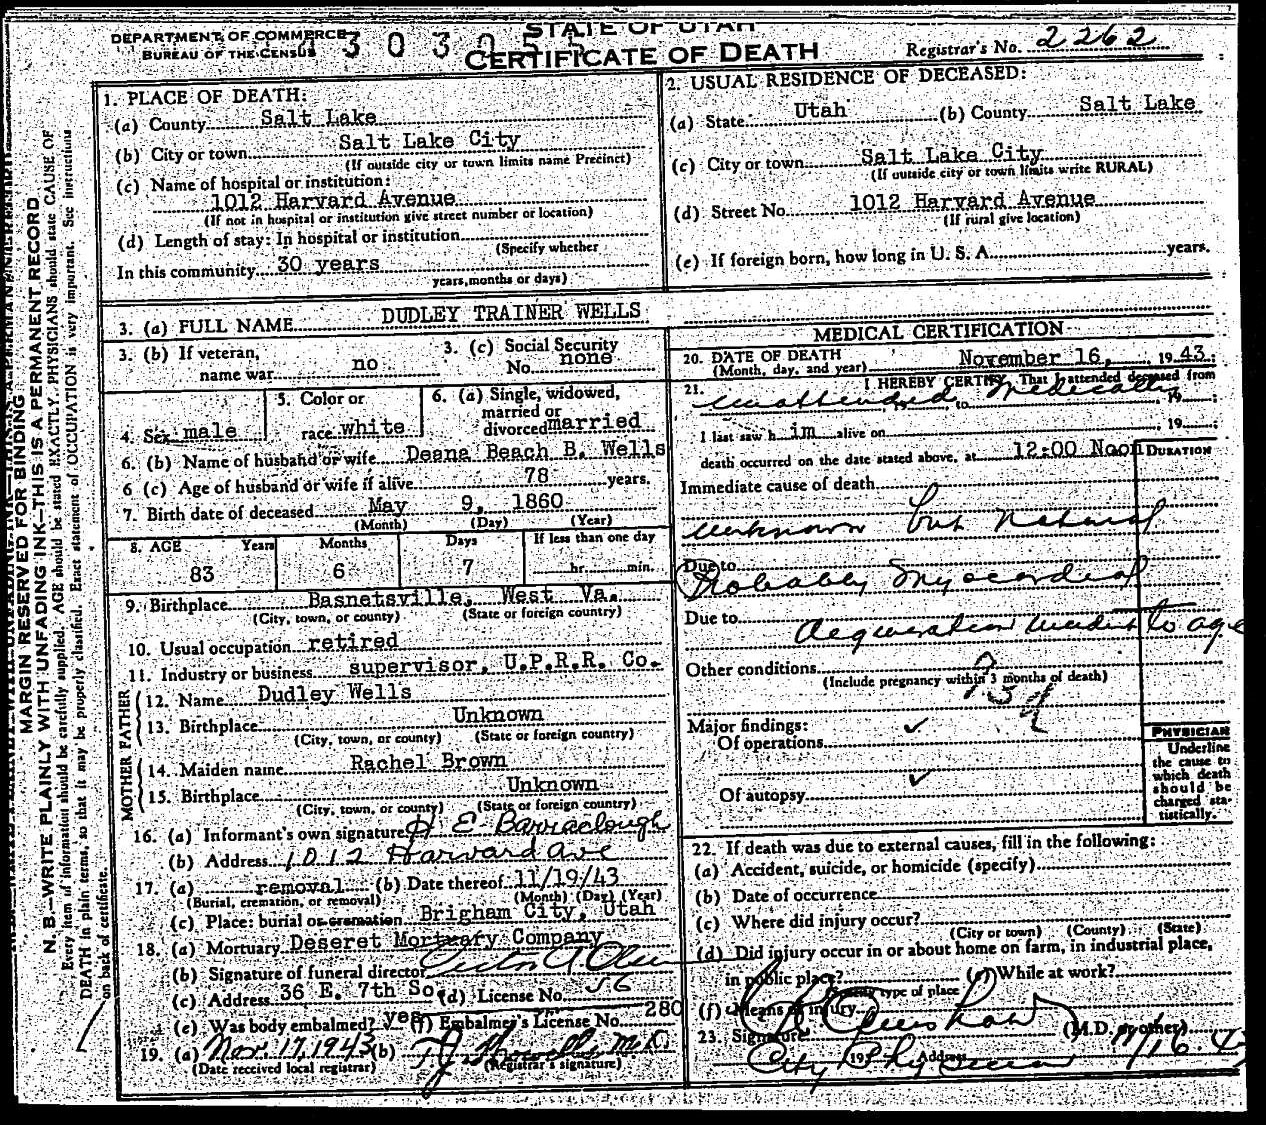 STATE OF UTAH
DEPARTMENT OF COMMERCE
BUREAU OF THE CENSUS
CERTIFICATE OF DEATH
Registrar's No. 2262
MARGIN RESERVED FOR BINDING
N. B.—WRITE PLAINLY WITH UNFADING INK—THIS IS A PERMANENT RECORD
Every item of information should be carefully supplied. AGE should be stated EXACTLY. PHYSICIANS should state CAUSE OF
DEATH in plain terms, so that it may be properly classified. Exact statement of OCCUPATION is very important. See instructions
on back of certificate.
1. PLACE OF DEATH:
(a) County Salt Lake
(b) City or town Salt Lake City
(If outside city or town limits name Precinct)
(c) Name of hospital or institution:
1012 Harvard Avenue
(If not in hospital or institution give street number or location)
(d) Length of stay: In hospital or institution
(Specify whether
In this community 30 years
years, months or days)
2. USUAL RESIDENCE OF DECEASED:
(a) State Utah (b) County Salt Lake
(c) City or town Salt Lake City
(If outside city or town limits write RURAL)
(d) Street No. 1012 Harvard Avenue
(If rural give location)
(e) If foreign born, how long in U. S. A. years.
3. (a) FULL NAME DUDLEY TRAINER WELLS
3. (b) If veteran, name war no
3. (c) Social Security No. none
4. Sex male
5. Color or race white
6. (a) Single, widowed, married or divorced married
6. (b) Name of husband or wife Deana Beach B. Wells
6 (c) Age of husband or wife if alive 78 years.
7. Birth date of deceased May 9, 1860
(Month) (Day) (Year)
8. AGE Years Months Days If less than one day
83 6 7 hr. min.
9. Birthplace Basnetsville, West Va.
(City, town, or county) (State or foreign country)
10. Usual occupation retired
11. Industry or business supervisor, U.P.R.R. Co.
FATHER
12. Name Dudley Wells
13. Birthplace Unknown
(City, town, or county) (State or foreign country)
MOTHER
14. Maiden name Rachel Brown
15. Birthplace Unknown
(City, town, or county) (State or foreign country)
16. (a) Informant's own signature H E Barraclough
(b) Address 1012 Harvard Ave
17. (a) removal (b) Date thereof 11/19/43
(Burial, cremation, or removal) (Month) (Day) (Year)
(c) Place: burial or cremation Brigham City, Utah
18. (a) Mortuary Deseret Mortuary Company
(b) Signature of funeral director
(c) Address 36 E. 7th So. (d) License No. 56
(e) Was body embalmed? yes (f) Embalmer's License No. 280
19. (a) Nov. 17, 1943 (b)
(Date received local registrar) (Registrar's signature)
MEDICAL CERTIFICATION
20. DATE OF DEATH November 16, 1943
(Month, day, and year)
21. I HEREBY CERTIFY, That I attended deceased from
unattended, 19 to medically, 19
I last saw him alive on , 19
death occurred on the date stated above, at 12:00 Noon
DURATION
Immediate cause of death
unknown but natural
Due to
Probably myocardial
Due to
degeneration incident to age
Other conditions
(Include pregnancy within 3 months of death)
Major findings:
Of operations
Of autopsy
PHYSICIAN
Underline
the cause to
which death
should be
charged sta-
tistically.
22. If death was due to external causes, fill in the following:
(a) Accident, suicide, or homicide (specify)
(b) Date of occurrence
(c) Where did injury occur?
(City or town) (County) (State)
(d) Did injury occur in or about home on farm, in industrial place,
in public place? (e) While at work?
(Specify type of place
(f) Means of injury
23. Signature (M.D. or other) 11/16.43
City Physician
Address